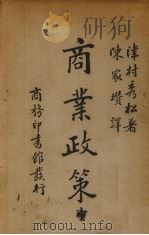 津村秀松著
陳家瓚譯
商業政策
商務印書館發行